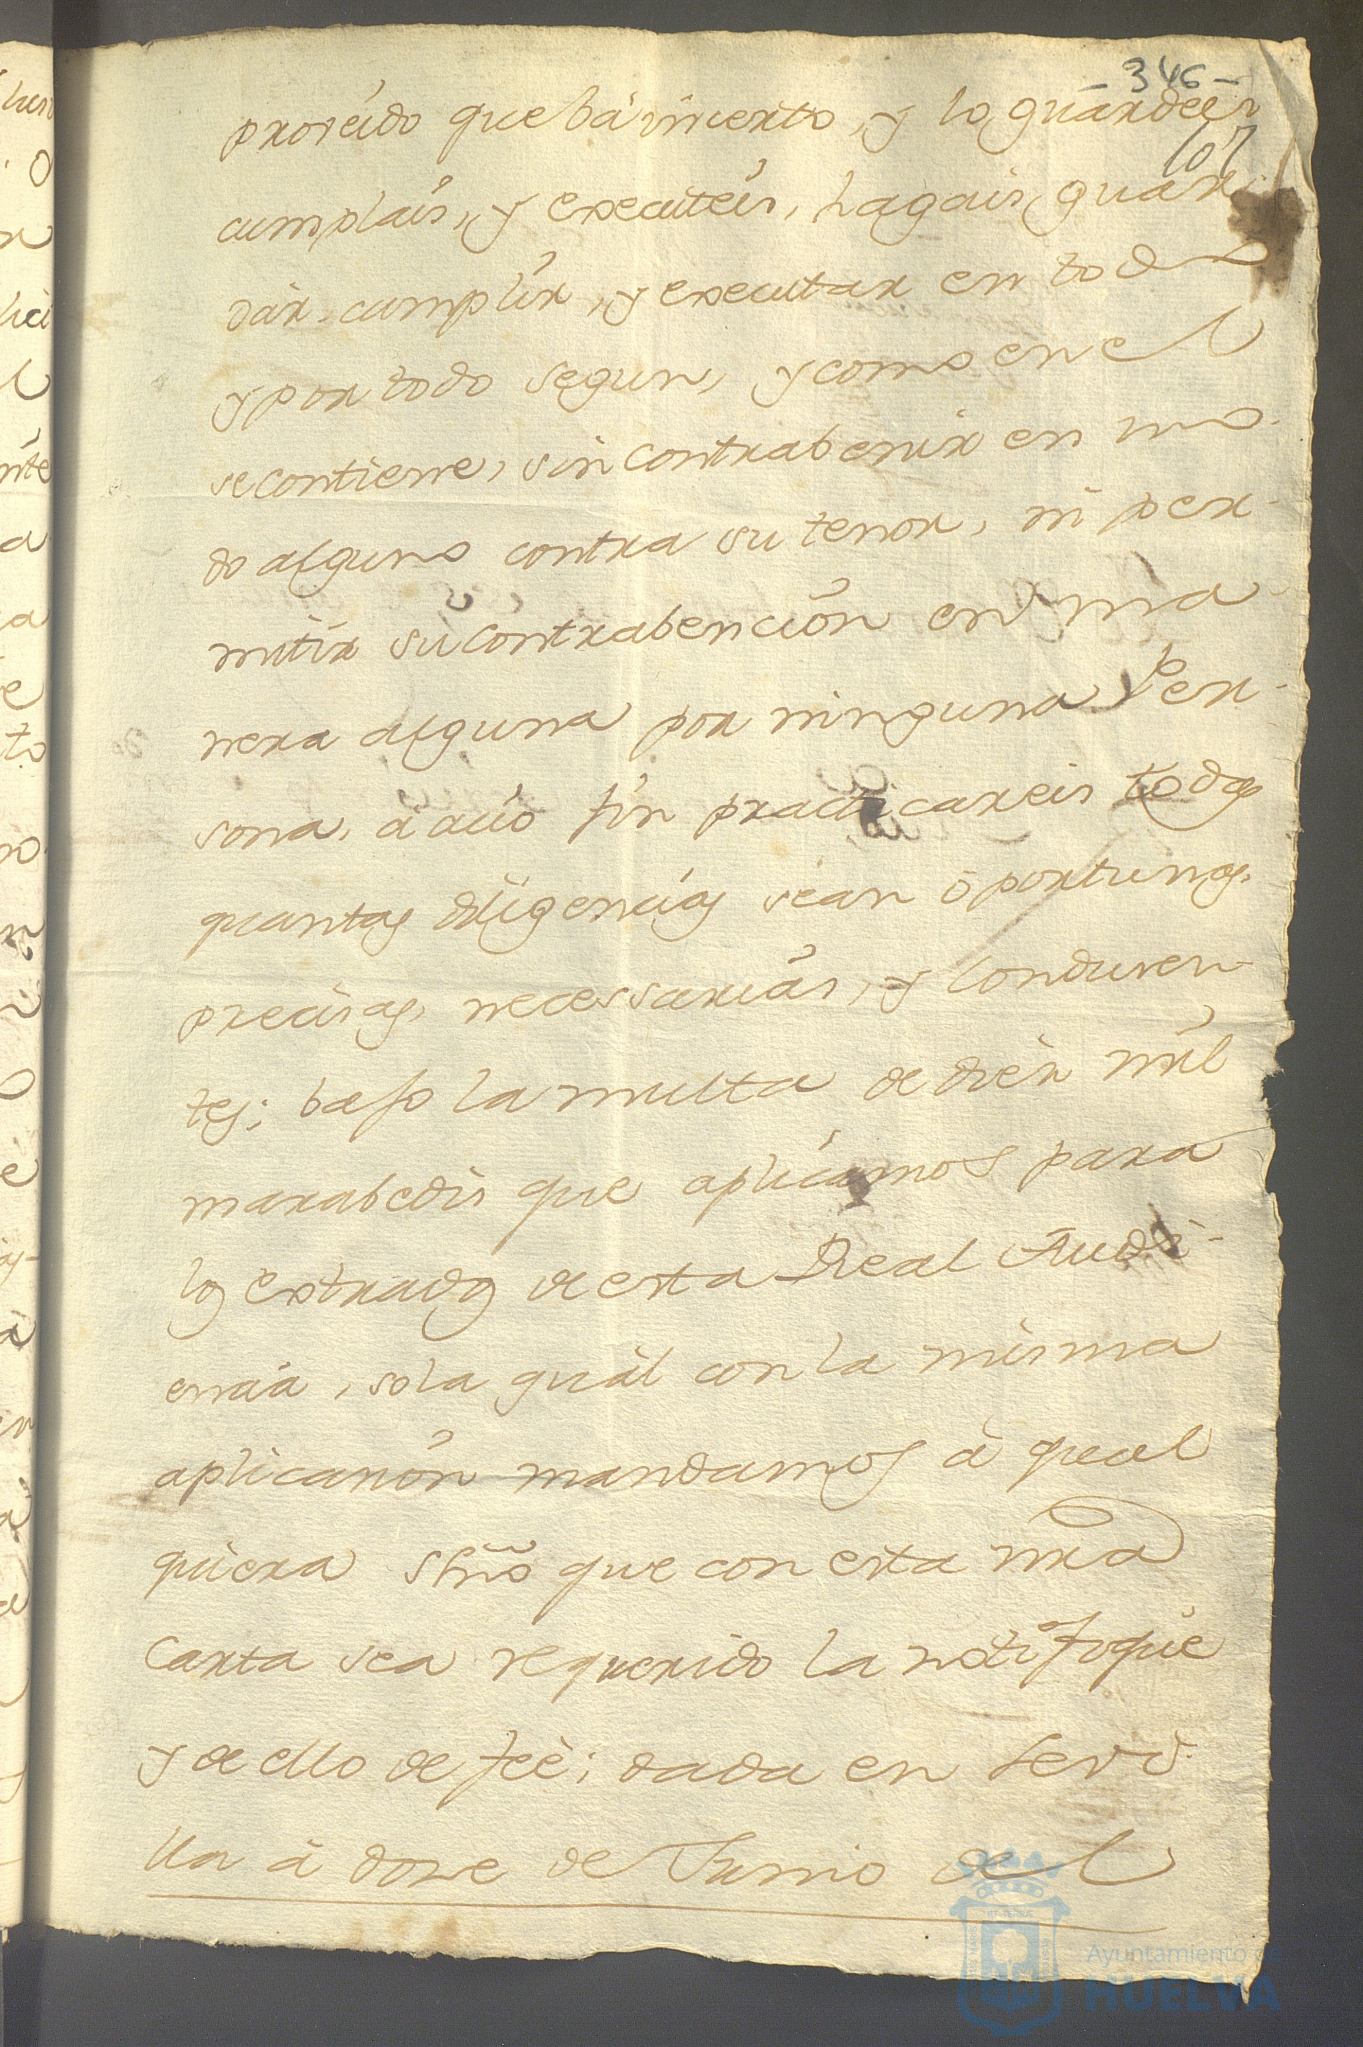 - 346 -
107
proveido que bá inserto, y lo guardeis
cumplais, y executeis, hagais, guar-
dar, cumplir, y executar en todo
y por todo segun, y como en el
se contiene, sin contrabenir en mo-
do alguno contra su tenor, ni per-
mitir su contrabención en ma-
nera alguna por ninguna Per-
sona, á cuio fin practicareis todas
quantas diligencias séan oportunas,
precisas, necessarias, y conducen-
tes; bajo la multa de diez mil
marabedis que aplicamos para
los estrados de esta Real Audi-
encia, so la qual con la misma
aplicación mandamos à qual
quiera Sſno que con esta nra
Carta sea requerido la notifique
y de ello de feè; dada en Sevi-
lla à doze de Junio del
Ayuntamiento de
HUELVA